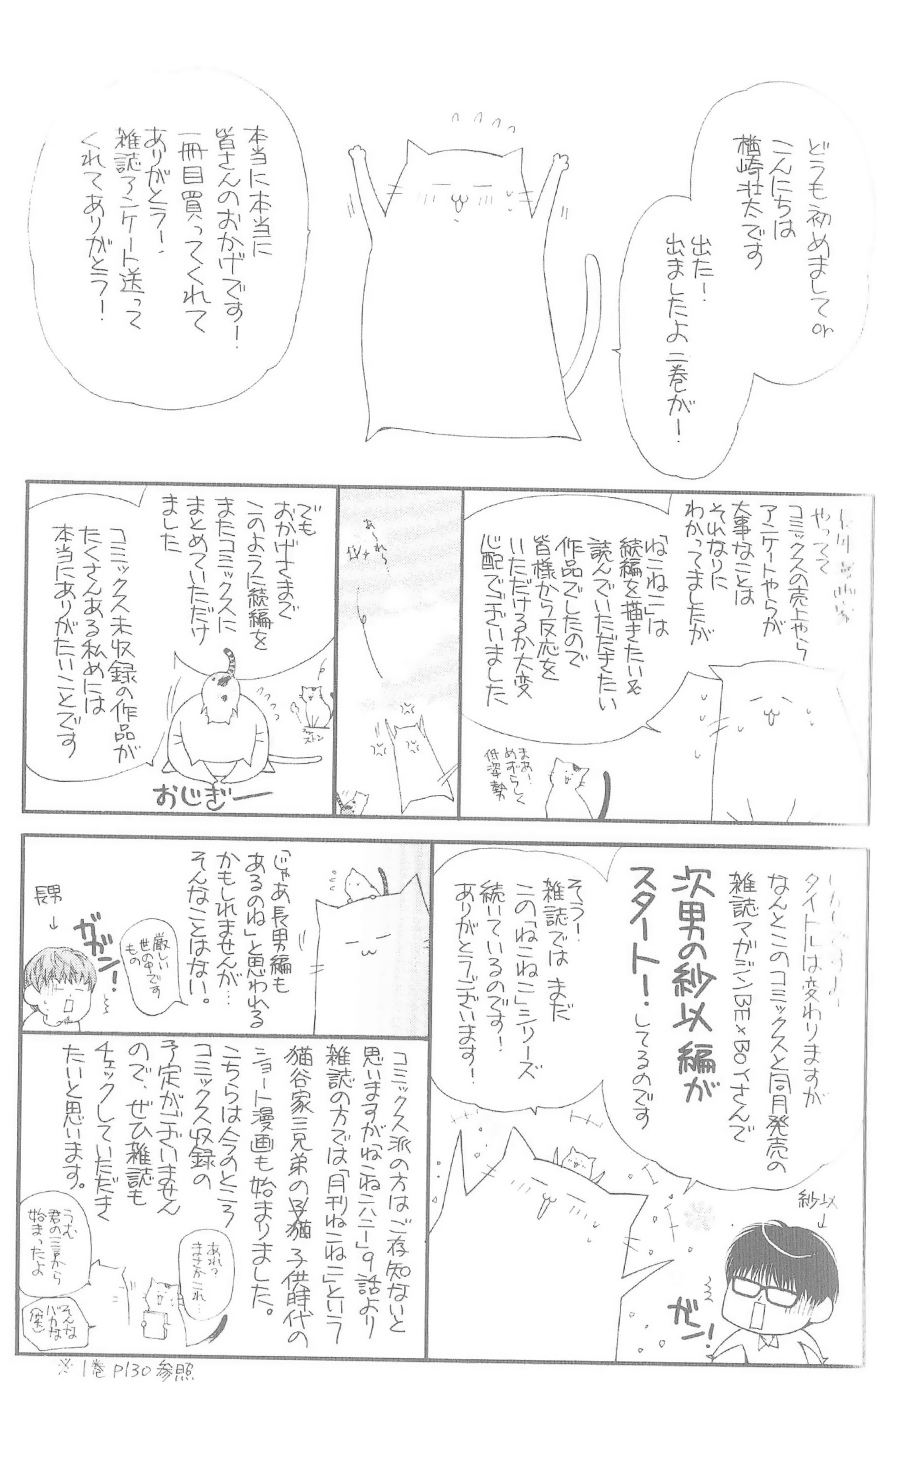 どうも初めましてor
こんにちは
楢崎壮太です
出た!
出ましたよ二巻が!
本当に本当に
皆さんのおかげです!
一冊目買ってくれて
ありがとう!
雑誌アンケート送って
くれてありがとう!
やってて
コミックスの売上やら
アンケートやらが
大事なことは
それなりに
わかってましたが
「ねこねこ」は
続編を描きたい&
読んでいただきたい
作品でしたので
皆様から反応を
いただけるか大変
心配でございました
まあ!
めずらしく
低姿勢
あ〜れ〜
でも
おかげさまで
このように続編を
またコミックスに
まとめていただけ
ました
コミックス未収録の作品が
たくさんある私めには
本当にありがたいことです
ストン
おじぎー
タイトルは変わりますが
なんとこのコミックスと同月発売の
雑誌マガジンBE×BOYさんで
次男の紗以編が
スタート!してるのです
そう!
雑誌では まだ
この「ねこねこ」シリーズ
続いているのです!
ありがとうございます!
紗以
ガン!
「じゃあ長男編も
あるのね」と思われる
かもしれませんが…
そんなことはない。
厳しい
世の中です
もの
長男
ガガン!
コミックス派の方はご存知ないと
思いますが「ねこねこハニー」9話より
雑誌の方では「月刊ねこねこ」という
猫谷家三兄弟の子猫子供時代の
ショート漫画も始まりました。
こちらは今のところ
コミックス収録の
予定がございません
ので、ぜひ雑誌も
チェックしていただき
たいと思います。
あれ?
まさかこれ…
うむ
君の一言から
始まったよ
そんな
バカな
(笑)
※1巻P130参照